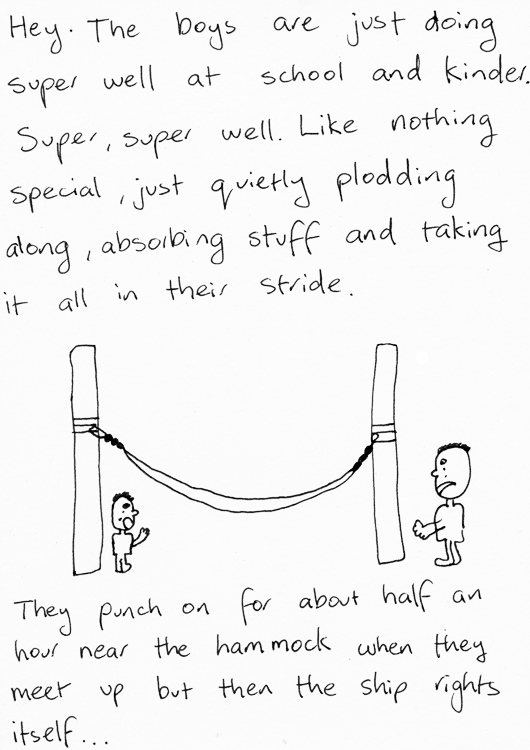 Hey. The boys are just doing
super well at school and kinder.
Super, super well. Like nothing
special, just quietly plodding
along, absorbing stuff and taking
it all in their stride.
They punch on for about half an
hour near the hammock when they
meet up but then the ship rights
itself...